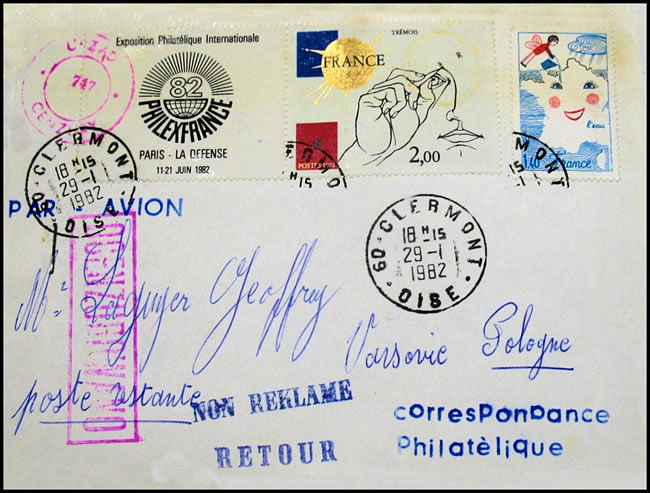 Exposition Philatélique Internationale
82
PHILEXFRANCE
PARIS - LA DEFENSE
11-21 JUIN 1982
TRÉMOIS
FRANCE
2,00
l'eau
1,10 France
747
60 - CLERMONT
18 H 15
29-1
1982
OISE
60 - CLERMONT
18 H 15
29-1
1982
OISE
PAR AVION
Mr Laguyer Geoffrey
Varsovie Pologne
poste restante
NON REKLAME
RETOUR
corresPonDance
Philatèlique